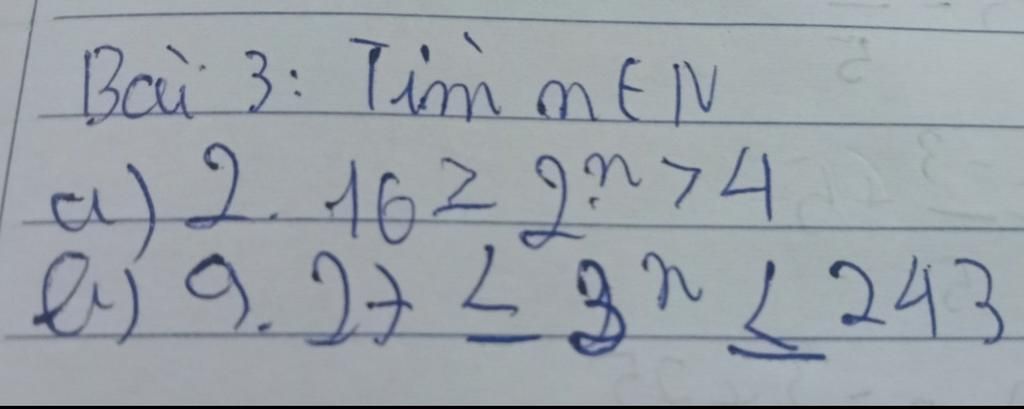 Bài 3: Tìm n ∈ N
a) 2. 16 ≥ 2ⁿ > 4
b) 9. 27 ≤ 3ⁿ ≤ 243